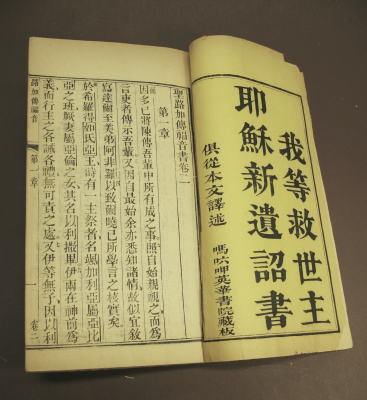 我等救世主
耶穌新遺詔書
俱從本文譯述
嗎㕭呷英華書院藏板
聖路加傳福音書卷三
第一章
因多已將陳傳吾輩中所有成之事照自始親視之而為
言吏者傳示吾輩又因自最始余亦悉知諸情故似宜敘
寫達爾至美弟阿非羅以致爾曉已所學言之核實矣
於希羅得如氐亞王時有一主祭者名颯加利亞屬亞比
亞之班厥妻屬亞倫之女其名以利撒畢伊兩在神前為
義而行主之各誡各禮無可責之處又伊等無子因以利
路加傳福音 第一章 一 卷三